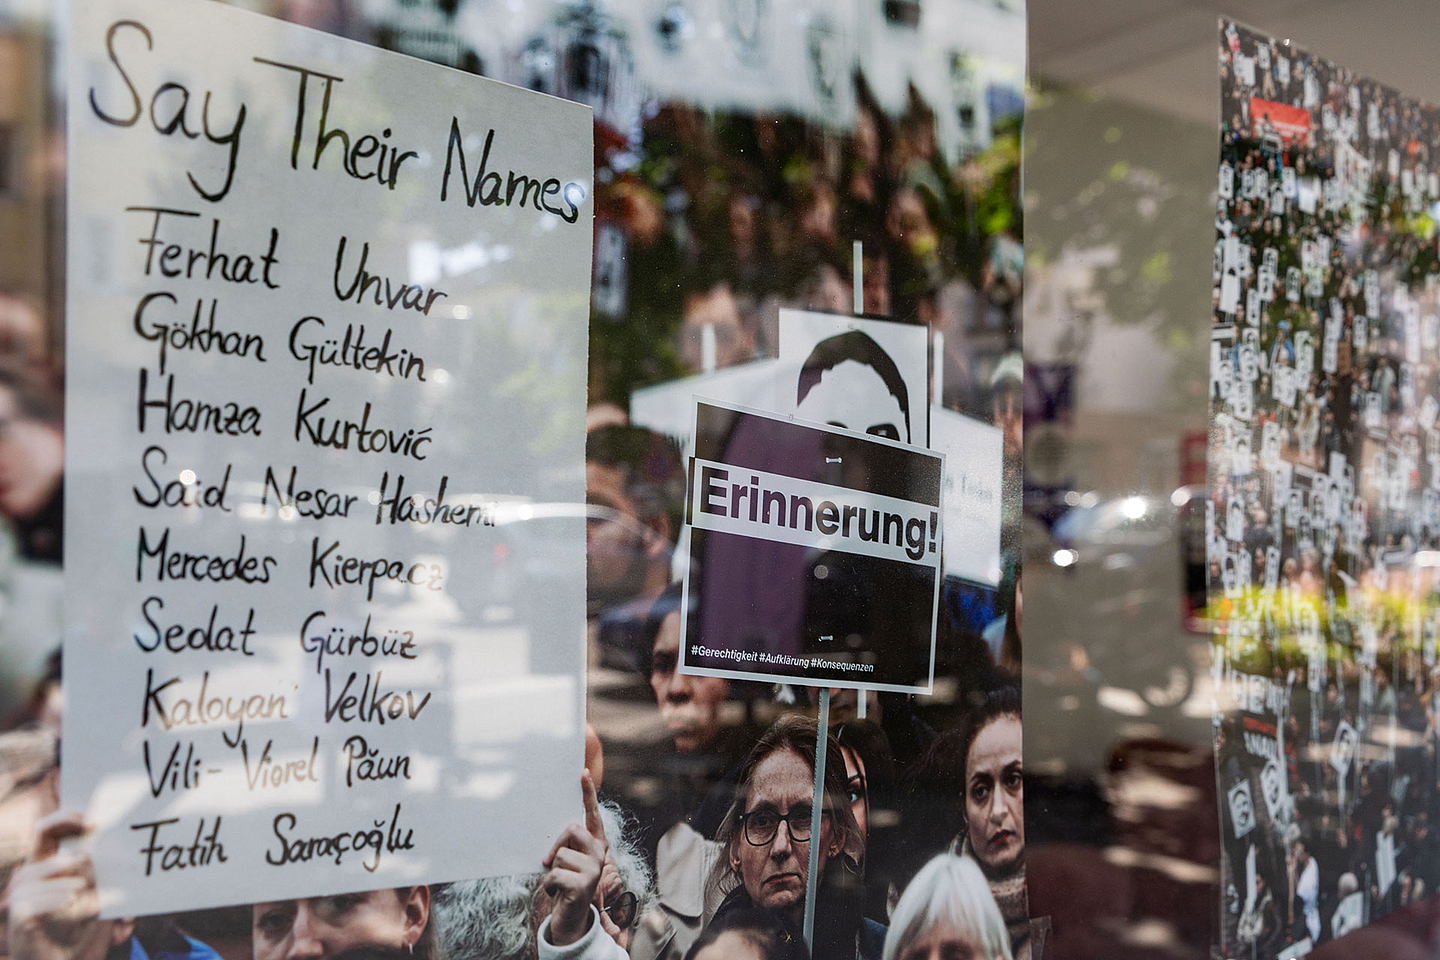 Say Their Names
Ferhat Unvar
Gökhan Gültekin
Hamza Kurtović
Said Nesar Hashemi
Mercedes Kierpacz
Sedat Gürbüz
Kaloyan Velkov
Vili-Viorel Păun
Fatih Saraçoğlu
Erinnerung!
#Gerechtigkeit #Aufklärung #Konsequenzen